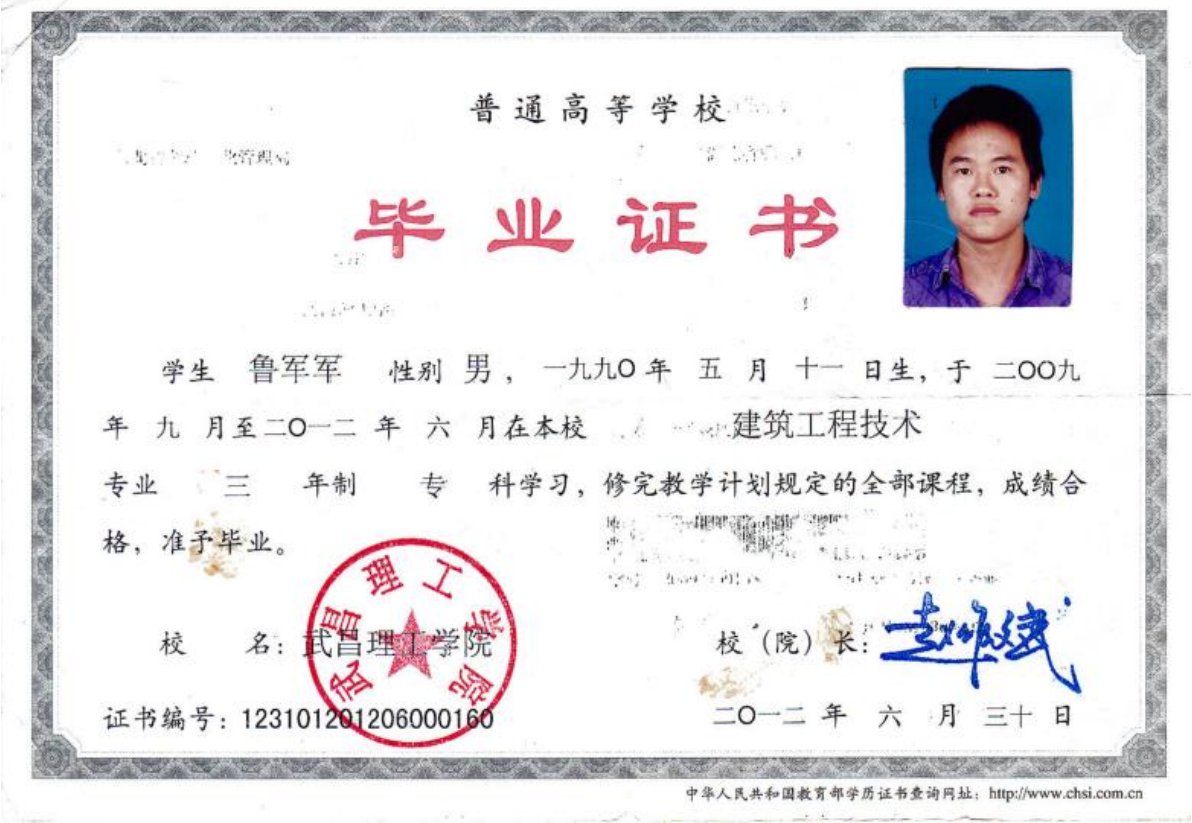 普通高等学校
毕业证书
学生 鲁军军 性别 男，一九九〇年 五 月 十一 日生，于 二〇〇九
年 九 月至二〇一二 年 六 月在本校 建筑工程技术
专业 三 年制 专 科学习，修完教学计划规定的全部课程，成绩合
格，准予毕业。
武昌理工学院
校 名：武昌理工学院 校（院）长：
证书编号：123101201206000160 二〇一二 年 六 月 三十 日
中华人民共和国教育部学历证书查询网址：http://www.chsi.com.cn